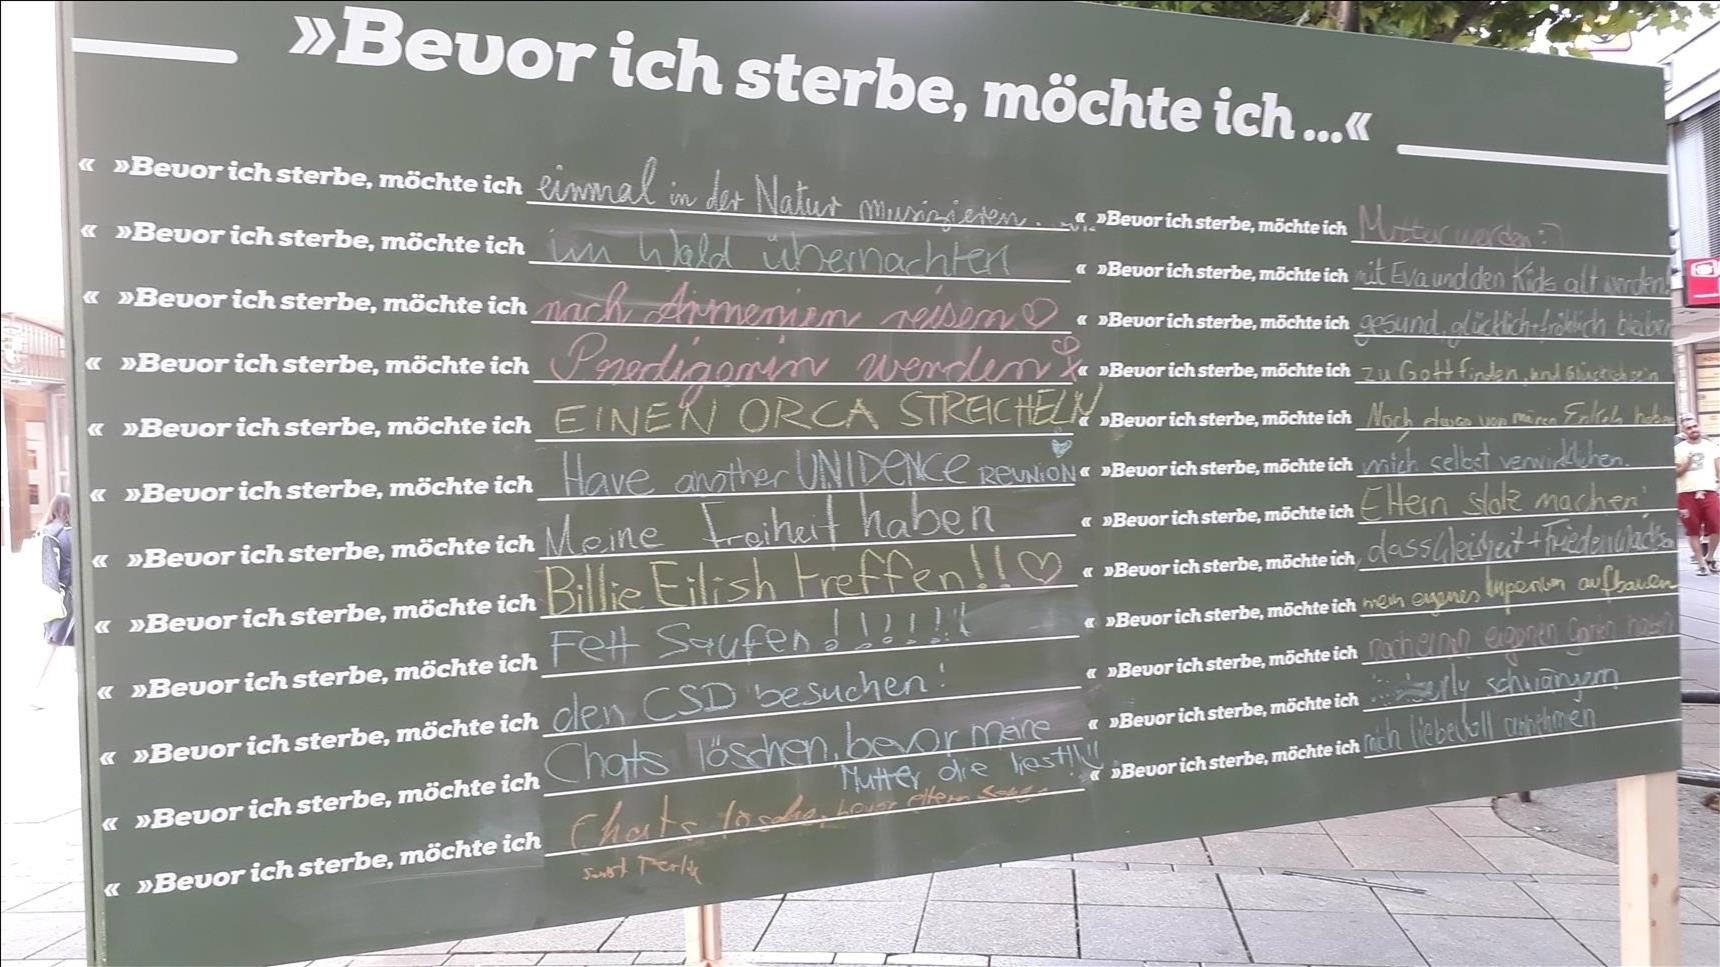 »Bevor ich sterbe, möchte ich ...«
« »Bevor ich sterbe, möchte ich einmal in der Natur musizieren...
« »Bevor ich sterbe, möchte ich im Wald übernachten
« »Bevor ich sterbe, möchte ich nach Armenien reisen♡
« »Bevor ich sterbe, möchte ich Predigerin werden
« »Bevor ich sterbe, möchte ich EINEN ORCA STREICHELN
« »Bevor ich sterbe, möchte ich Have another UNIDENCE REUNION
« »Bevor ich sterbe, möchte ich Meine Freiheit haben
« »Bevor ich sterbe, möchte ich Billie Eilish treffen!!♡
« »Bevor ich sterbe, möchte ich Fett Saufen!!!!!!
« »Bevor ich sterbe, möchte ich den CSD besuchen!
« »Bevor ich sterbe, möchte ich Chats löschen, bevor meine
Mutter die liest!!!
« »Bevor ich sterbe, möchte ich Chats bevor eltern
sonst
« »Bevor ich sterbe, möchte ich Mutter werden :)
« »Bevor ich sterbe, möchte ich mit Eva und den Kids alt werden
« »Bevor ich sterbe, möchte ich gesund, glücklich + fröhlich bleiben
« »Bevor ich sterbe, möchte ich zu Gott finden, und Glücklich sein
« »Bevor ich sterbe, möchte ich Noch etwas von meinen Enkeln haben
« »Bevor ich sterbe, möchte ich mich selbst verwirklichen.
« »Bevor ich sterbe, möchte ich Eltern stolz machen!
« »Bevor ich sterbe, möchte ich dass Gleichheit + Frieden
« »Bevor ich sterbe, möchte ich mein eigenes Imperium aufbauen
« »Bevor ich sterbe, möchte ich noch einen eigenen Garten haben
« »Bevor ich sterbe, möchte ich schwängern
« »Bevor ich sterbe, möchte ich mich liebevoll annehmen